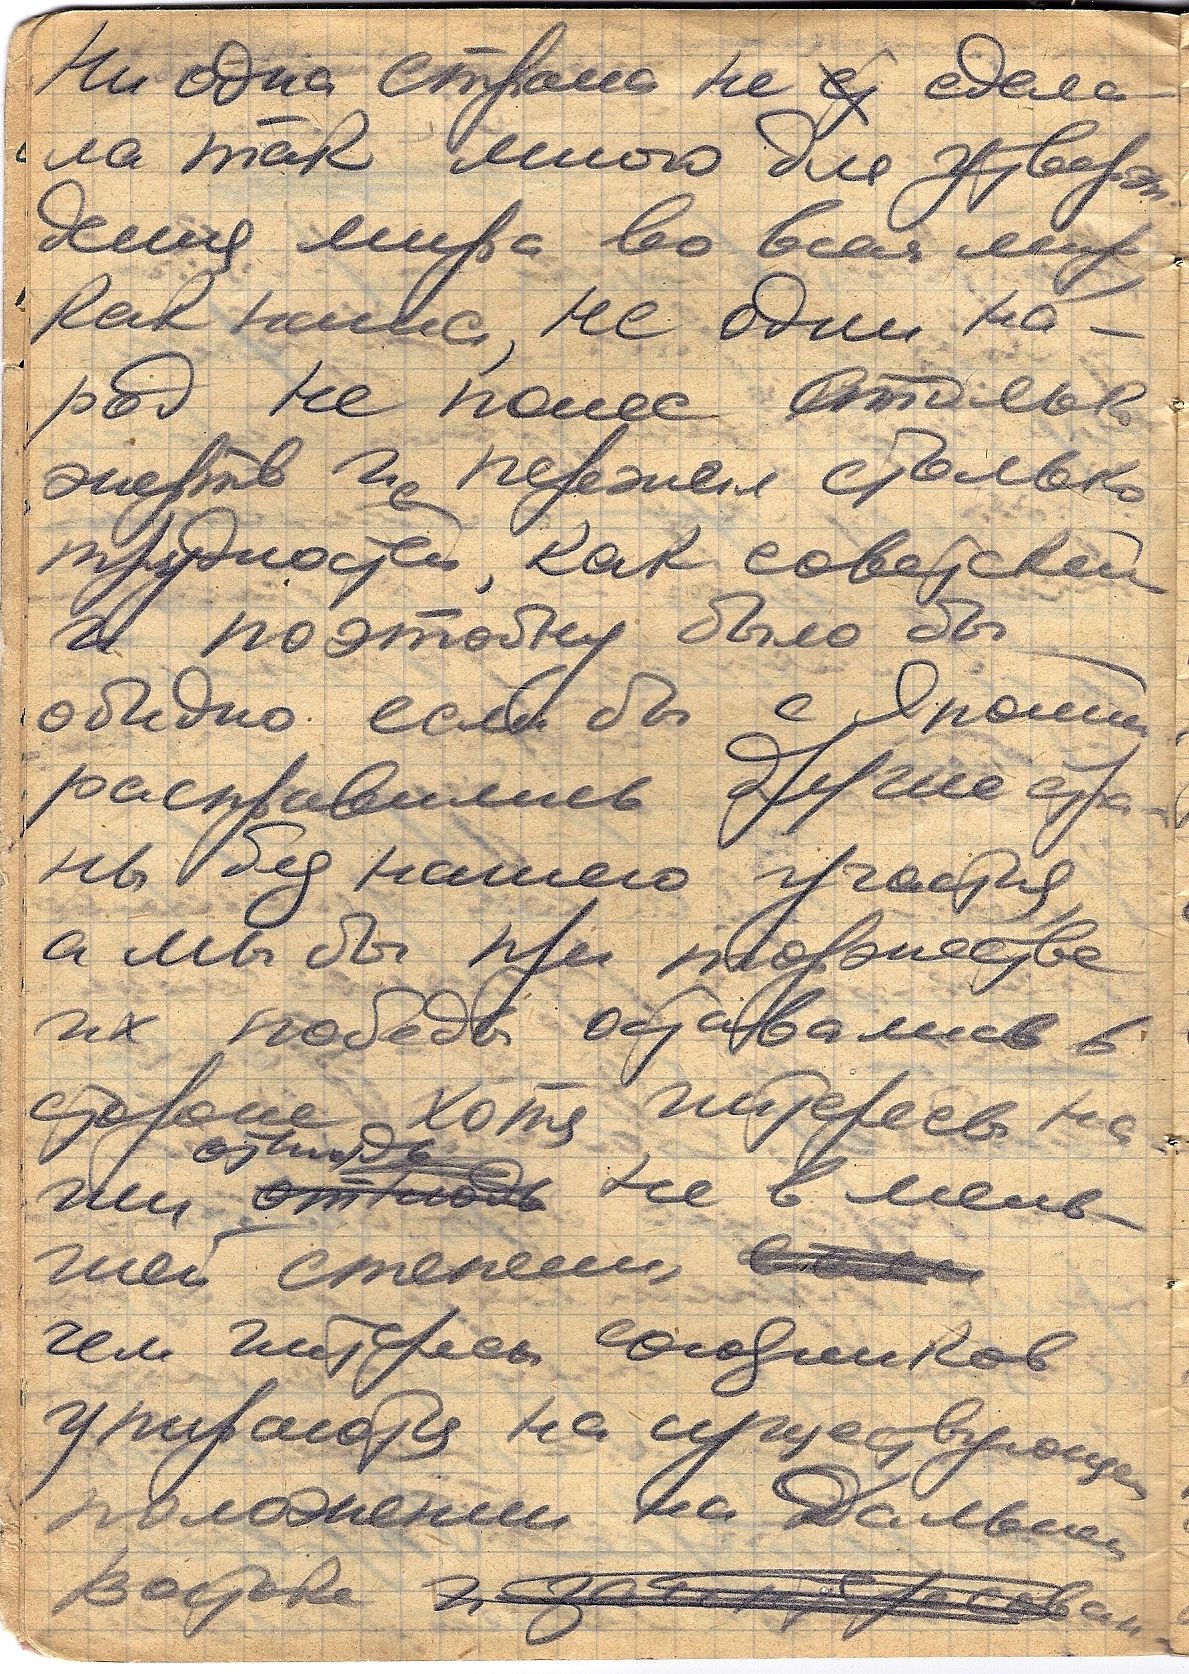 Ни одна страна не с сдела-
ла так много для утверж-
дения мира во всем мире,
как наша, не один на-
род не понес столько
жертв и не пережил столько
трудностей, как советский
и поэтому было бы
обидно если бы с Японией
расправились другие стра-
ны без нашего участия,
а мы бы при торжестве
их победы оставались в
стороне хотя интересы на
отнюдь
ши отнюдь не в мень-
шей степени,
чем интересы союзников
упираются на существующем
положении на Дальнем
востоке и заинтересован